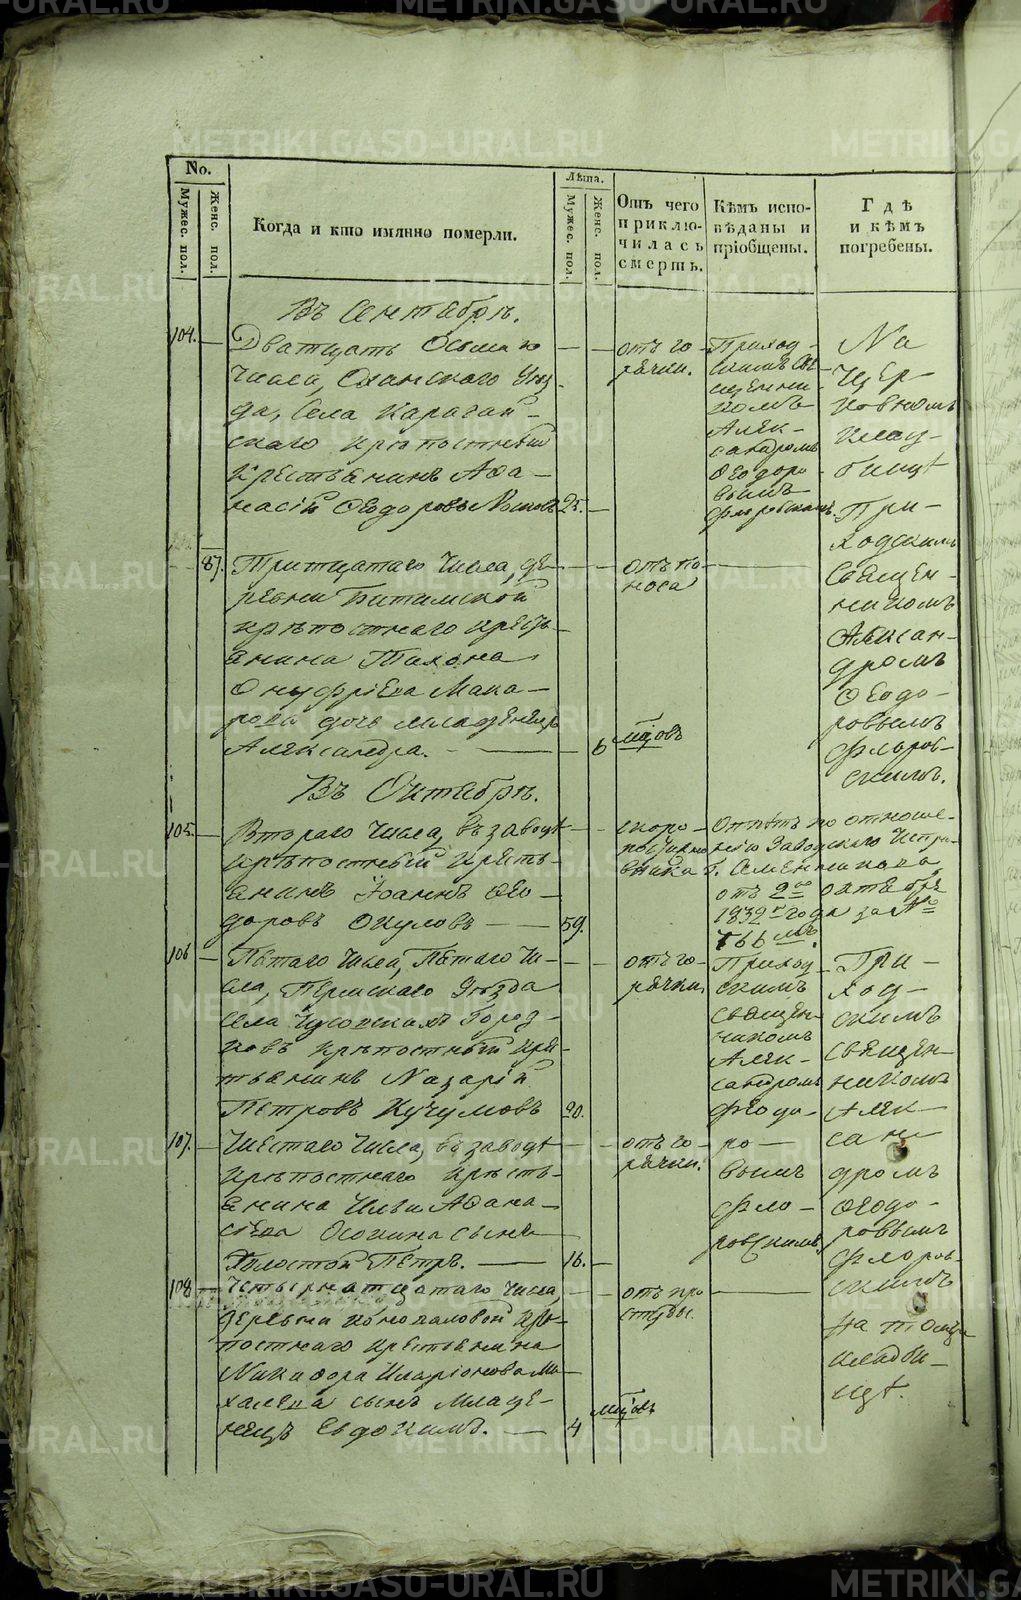 METRIKI.GASO-URAL.RU
No.
Мужес. пол.
Женс. пол.
Когда и кто имянно померли.
Лѣта.
Мужес. пол.
Женс. пол.
Отъ чего
приклю-
чилась
смерть.
Кѣмъ испо-
вѣданы и
пріобщены.
Гдѣ
и кѣмъ
погребены.
Въ Сентябрѣ.
104.
Дватцать Осьмаго
числа, Оханскаго Уѣз-
да, Села Карагай-
скаго крѣпостный
крестьянинъ Афа-
насій Ѳеодоровъ
25.
отъ го-
рячки.
Приход-
скимъ Свя-
щенни-
комъ
Алек-
сандромъ
Ѳеодоро-
вымъ
Флоровскимъ.
На
Цер-
ковномъ
клад-
бищѣ
При-
ходскимъ
Священ-
никомъ
Алексан-
дромъ
Ѳеодо-
ровымъ
Флоров-
скимъ.
87.
Тритцатаго числа, де-
ревни Битимской
крѣпостнаго кресть-
янина Тихона
Онуфріева Мака-
рова дочь младенецъ
Александра.
6 мцовъ
отъ по-
носа
Въ Октябрѣ.
105.
Втораго числа, въ заводѣ
крѣпостный кресть-
янинъ Іоаннъ Ѳео-
доровъ Окуловъ
59.
скоро-
постижно
Отпѣтъ по отноше-
нію Заводскаго Испра-
вника Г.
отъ 2го октября
1832 года за №
766мъ.
106
Пятаго числа, Пятаго чи-
сла, Пермскаго Уѣзда
села Чусовскихъ Город-
ковъ крѣпостный кре-
стьянинъ Назарій
Петровъ Кучумовъ
20.
отъ го-
рячки.
Приход-
скимъ
священ-
никомъ
Алек-
сандромъ
Ѳеодо-
ро-
вымъ
Фло-
ровскимъ.
При-
ход-
скимъ
священ-
никомъ
Алек-
сан-
дромъ
Ѳеодо-
ровымъ
Флоров-
скимъ
на томже
кладби-
щѣ.
107.
Шестаго числа, въ заводѣ
крѣпостнаго кресть-
янина Ильи Афана-
сіева Осокина сынъ
Холостой Петръ.
16.
отъ го-
рячки.
108
Четырнатцатаго числа,
деревни Коноваловой крѣ-
постнаго крестьянина
Никифора Иларіонова Ми-
халева сынъ младе-
нецъ Евдокимъ.
4 мцовъ
отъ про-
студы.